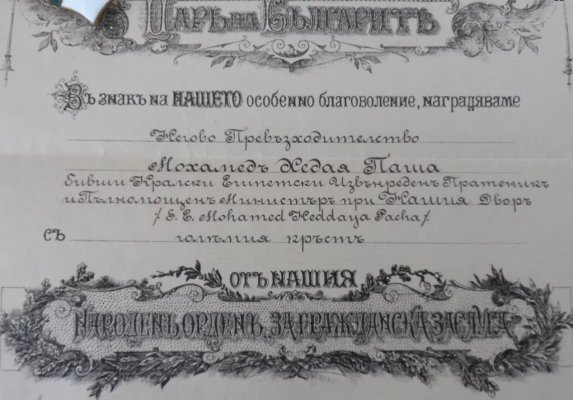 Царь на Българитѣ
Въ знакъ на НАШЕТО особенно благоволение, награждаваме
Негово Превъзходителство
Мохамедъ Хедая Паша
бивши Кралски Египетски Извънреденъ Пратеникъ
и Пълномощенъ Министъръ при Нашия Дворъ
/S. E. Mohamed Heddaya Pacha/
съ голѣмия кръстъ
отъ НАШИЯ
НАРОДЕНЪ ОРДЕНЪ ЗА ГРАЖДАНСКА ЗАСЛУГА